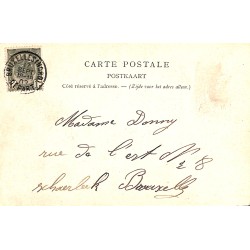 CARTE POSTALE
POSTKAART
Côté réservé à l'adresse. — (Zijde voor het adres alleen.)
Madame Donny
rue de l'est Nº 8
2
Schaerbeek Bruxelles